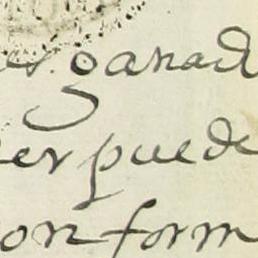 es ganad
er puede
on form